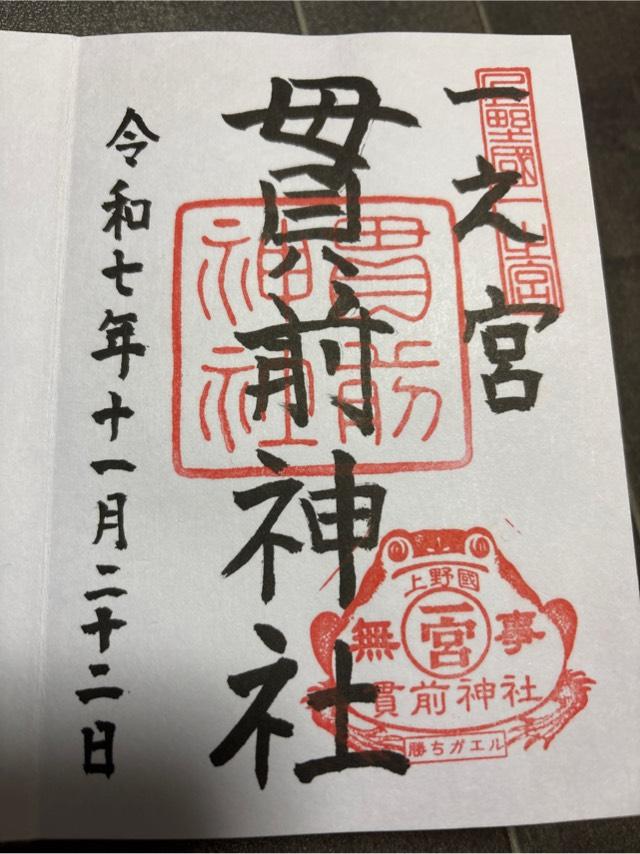 上野國一之宮
一之宮
貫前神社
貫前神社
上野國
一宮
無事
貫前神社
勝ちガエル
令和七年十一月二十二日